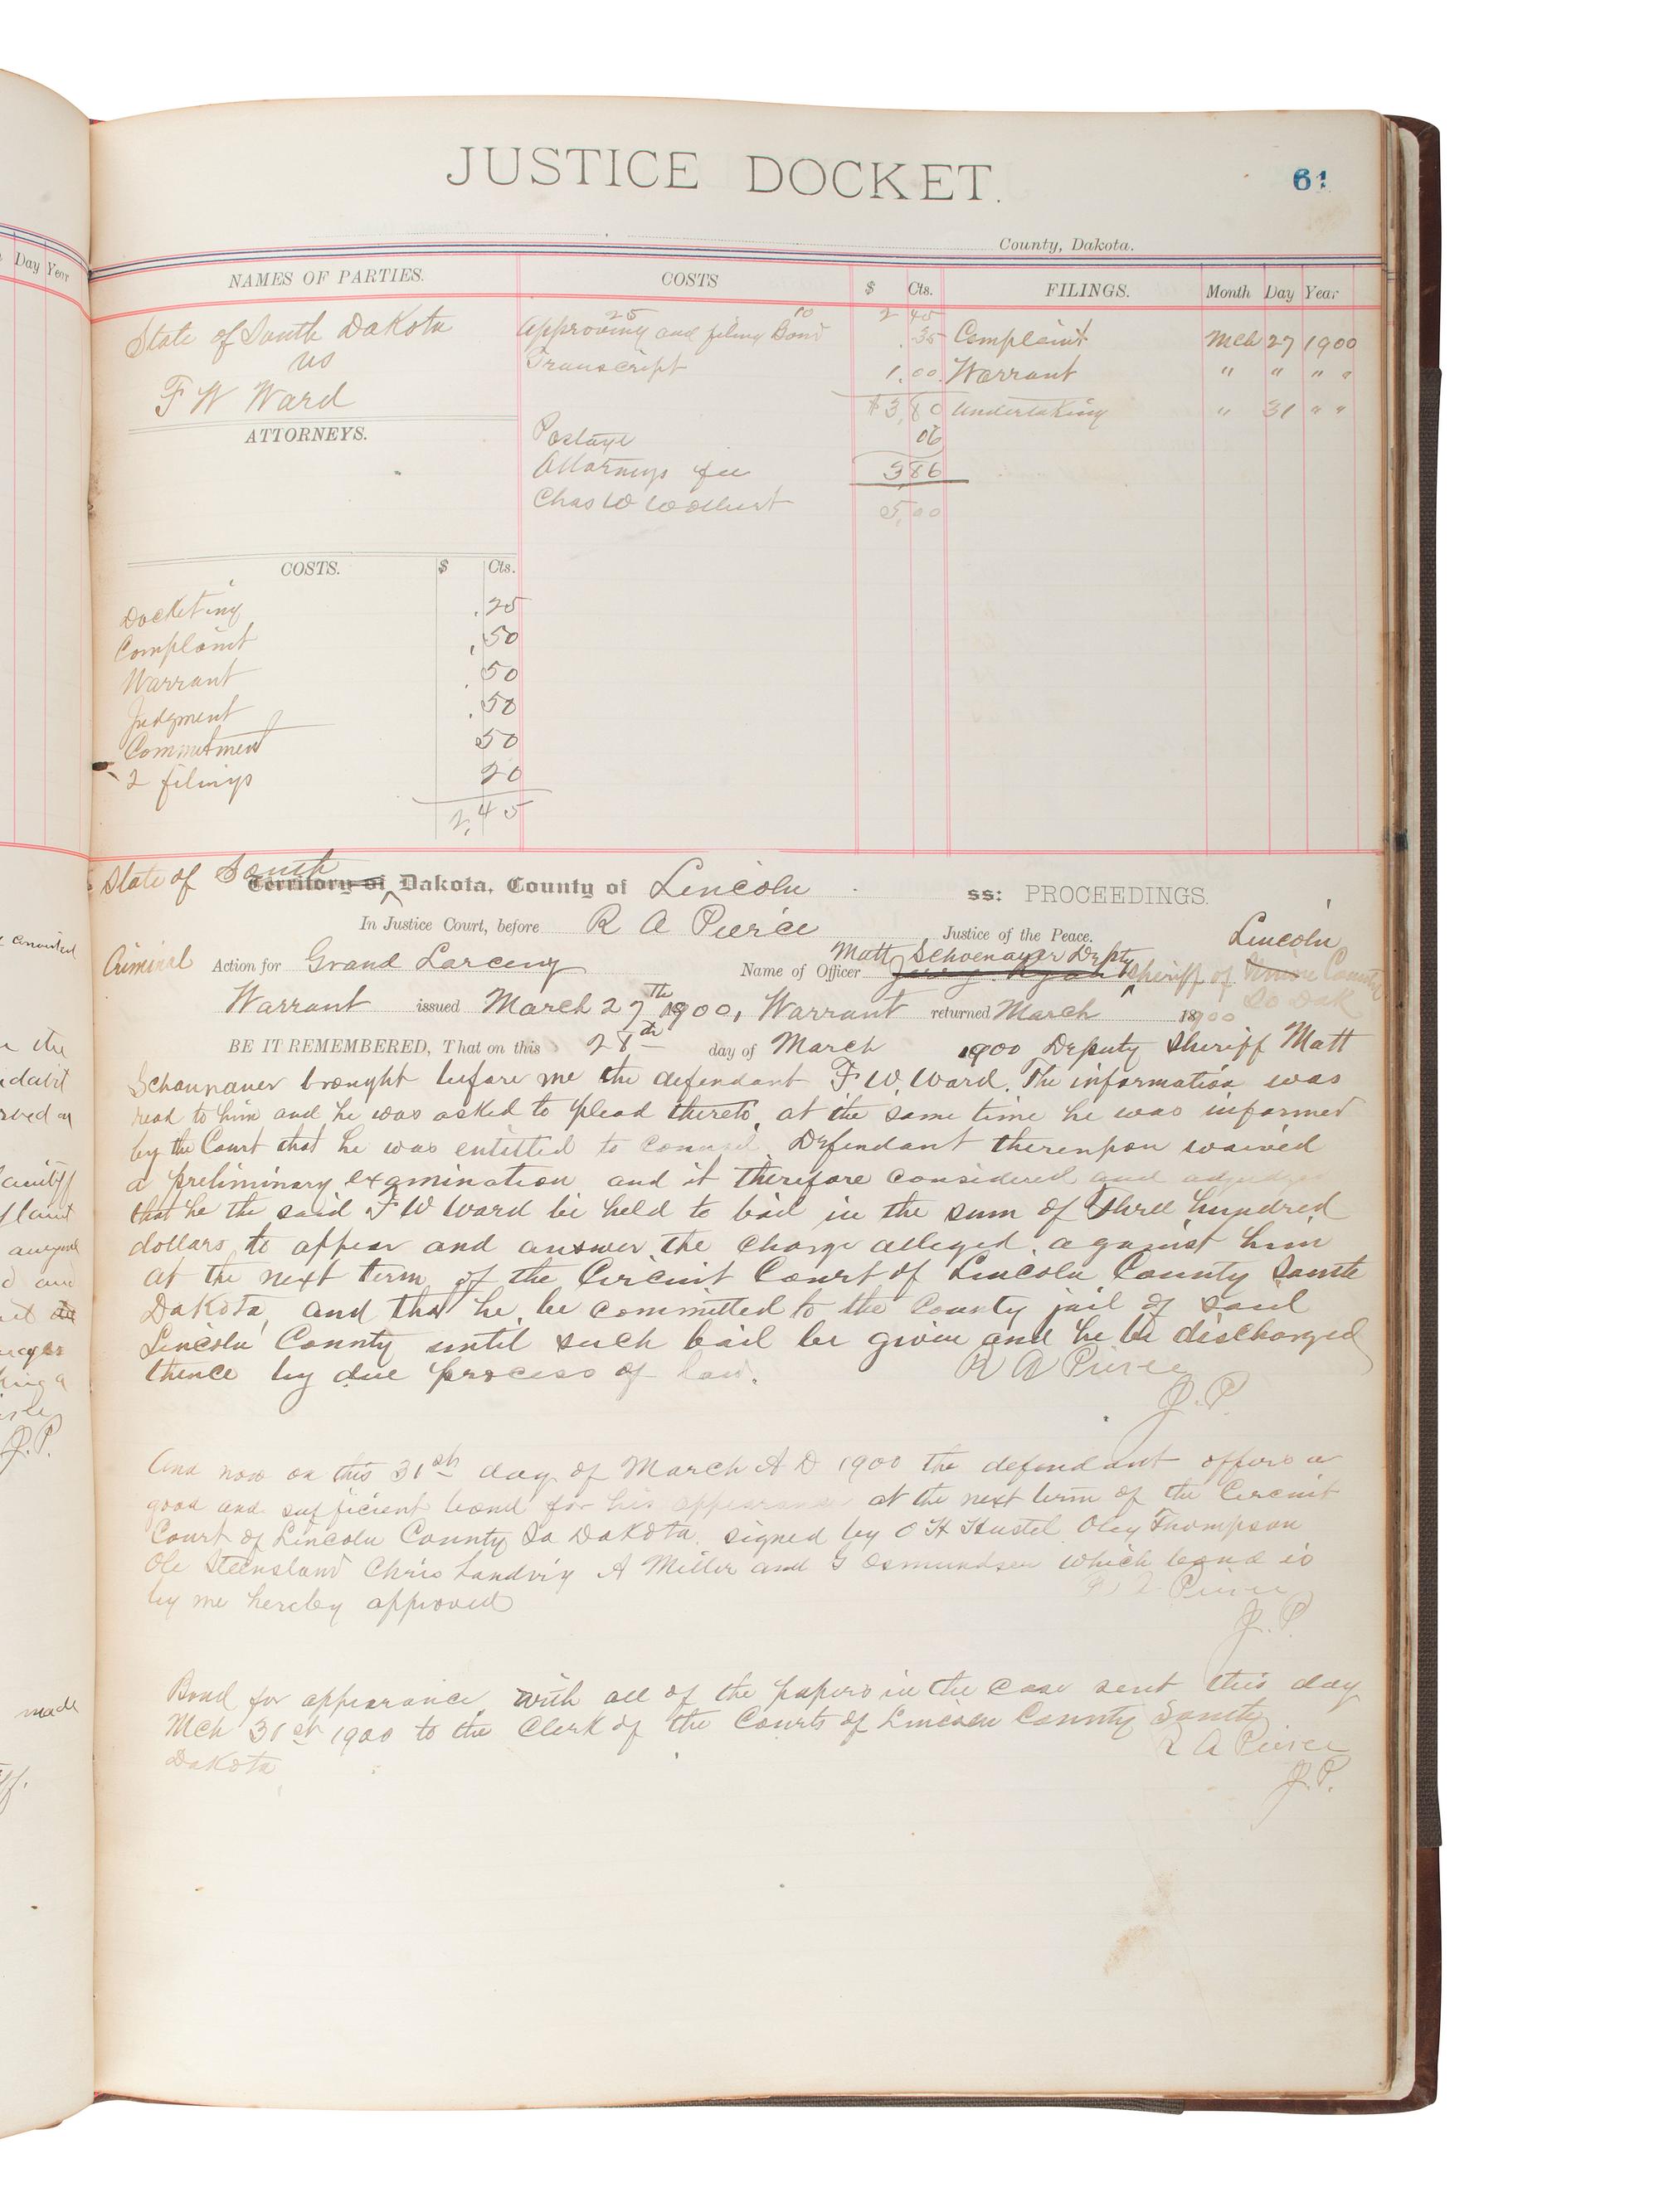 Day Year
JUSTICE DOCKET.
61
County, Dakota.
NAMES OF PARTIES.
COSTS
$ Cts.
FILINGS.
Month Day Year
State of South Dakota
vs
F W Ward
25 10 2 45
Approving and filing Bond .35
Transcript 1.00
$3,80
Postage 06
3 86
Attorneys fee
Chas W 5,00
Complaint Mch 27 1900
Warrant " " " "
Undertaking " 31 " "
ATTORNEYS.
COSTS. $ Cts.
Docketing .25
Complaint ,50
Warrant .50
Judgment .50
Commitment 50
2 filings 20
2,45
State of South Territory of Dakota, County of Lincoln ss: PROCEEDINGS.
In Justice Court, before R A Pierce Justice of the Peace.
Criminal Action for Grand Larceny Name of Officer Matt Schoenauer Depty Sheriff of Lincoln County
So Dak
Warrant issued March 27th 1900, Warrant returned March 1900
BE IT REMEMBERED, That on this 28th day of March 1900 Deputy Sheriff Matt
Schounauer brought before me the defendant F W. Ward. The information was
read to him and he was asked to plead thereto, at the same time he was informed
by the Court that he was entitled to counsel. Defendant thereupon waived
a preliminary examination and it therefore considered and adjudged
that he the said F W Ward be held to bail in the sum of Three hundred
dollars, to appear and answer the charge alleged against him
at the next term of the Circuit Court of Lincoln County South
Dakota, and that he be committed to the County jail of said
Lincoln County until such bail be given and he be discharged
thence by due process of law.
R A Pierce
J.P.
And now on this 31st day of March A D 1900 the defendant offers a
good and sufficient bond for his appearance at the next term of the Circuit
Court of Lincoln County So Dakota signed by O H Hustel Oley Thompson
Ole Steensland Chris Landvig A Miller and G Osmundsen which bond is
by me hereby approved
Pierce
J.P.
Bond for appearance with all of the papers in the case sent this day
Mch 31st 1900 to the Clerk of the Courts of Lincoln County South
Dakota
R A Pierce
J.P.